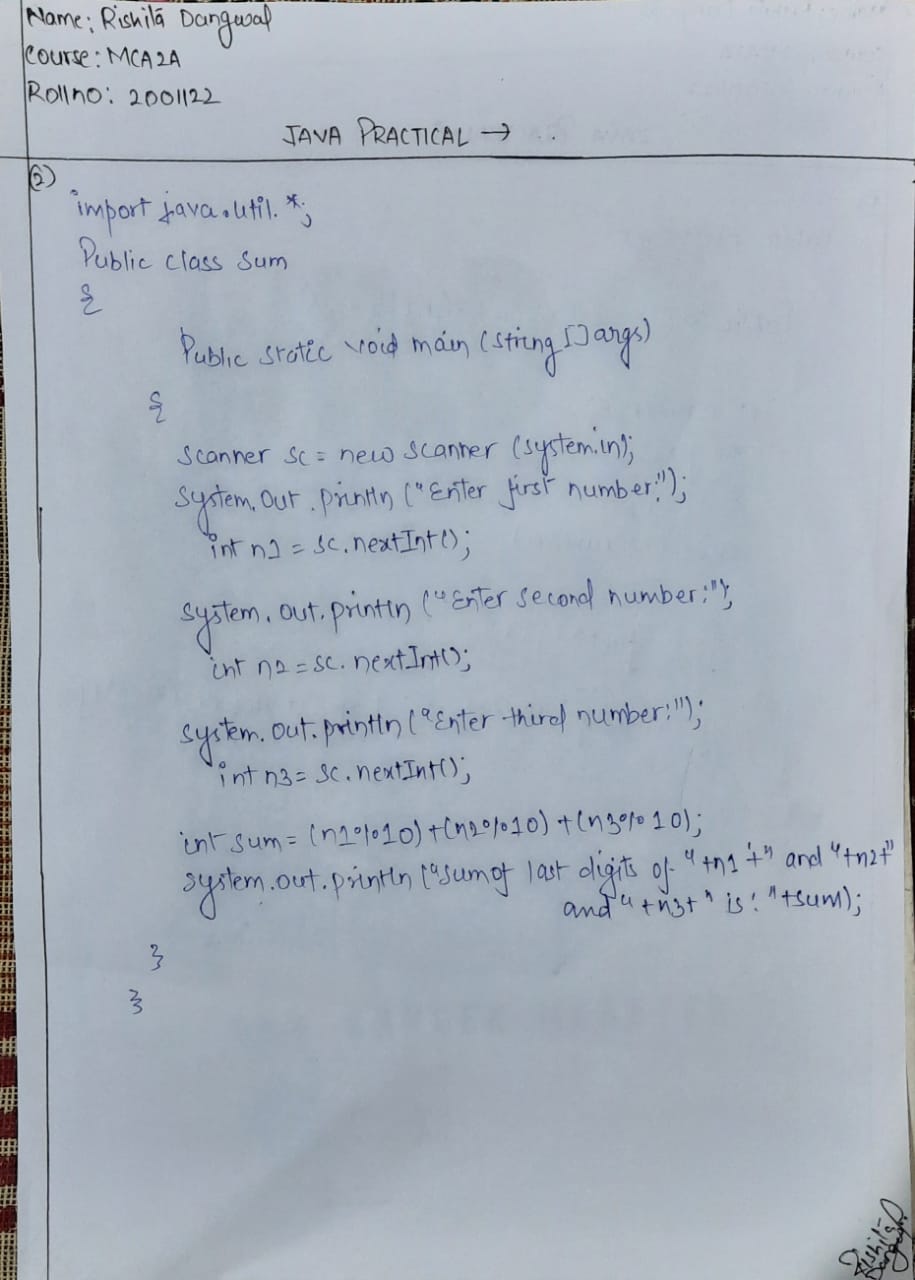 Name: Rishita Dangwal
Course: MCA2A
Rollno: 2001122
JAVA PRACTICAL →
2)
import java.util.*;
Public class Sum
{
Public static void main (string []args)
{
Scanner sc = new Scanner (system.in);
System.out.println ("Enter first number:");
int n1 = sc.nextInt();
system.out.println ("Enter second number:");
int n2 = sc.nextInt();
system.out.println ("Enter third number:");
int n3 = sc.nextInt();
int sum = (n1%10)+(n2%10)+(n3%10);
system.out.println ("sum of last digits of "+n1+" and "+n2+"
and "+n3+" is: "+sum);
}
}
Rishita
Dangwal